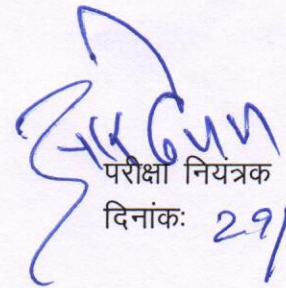 परीक्षा नियंत्रक
दिनांकः 29/